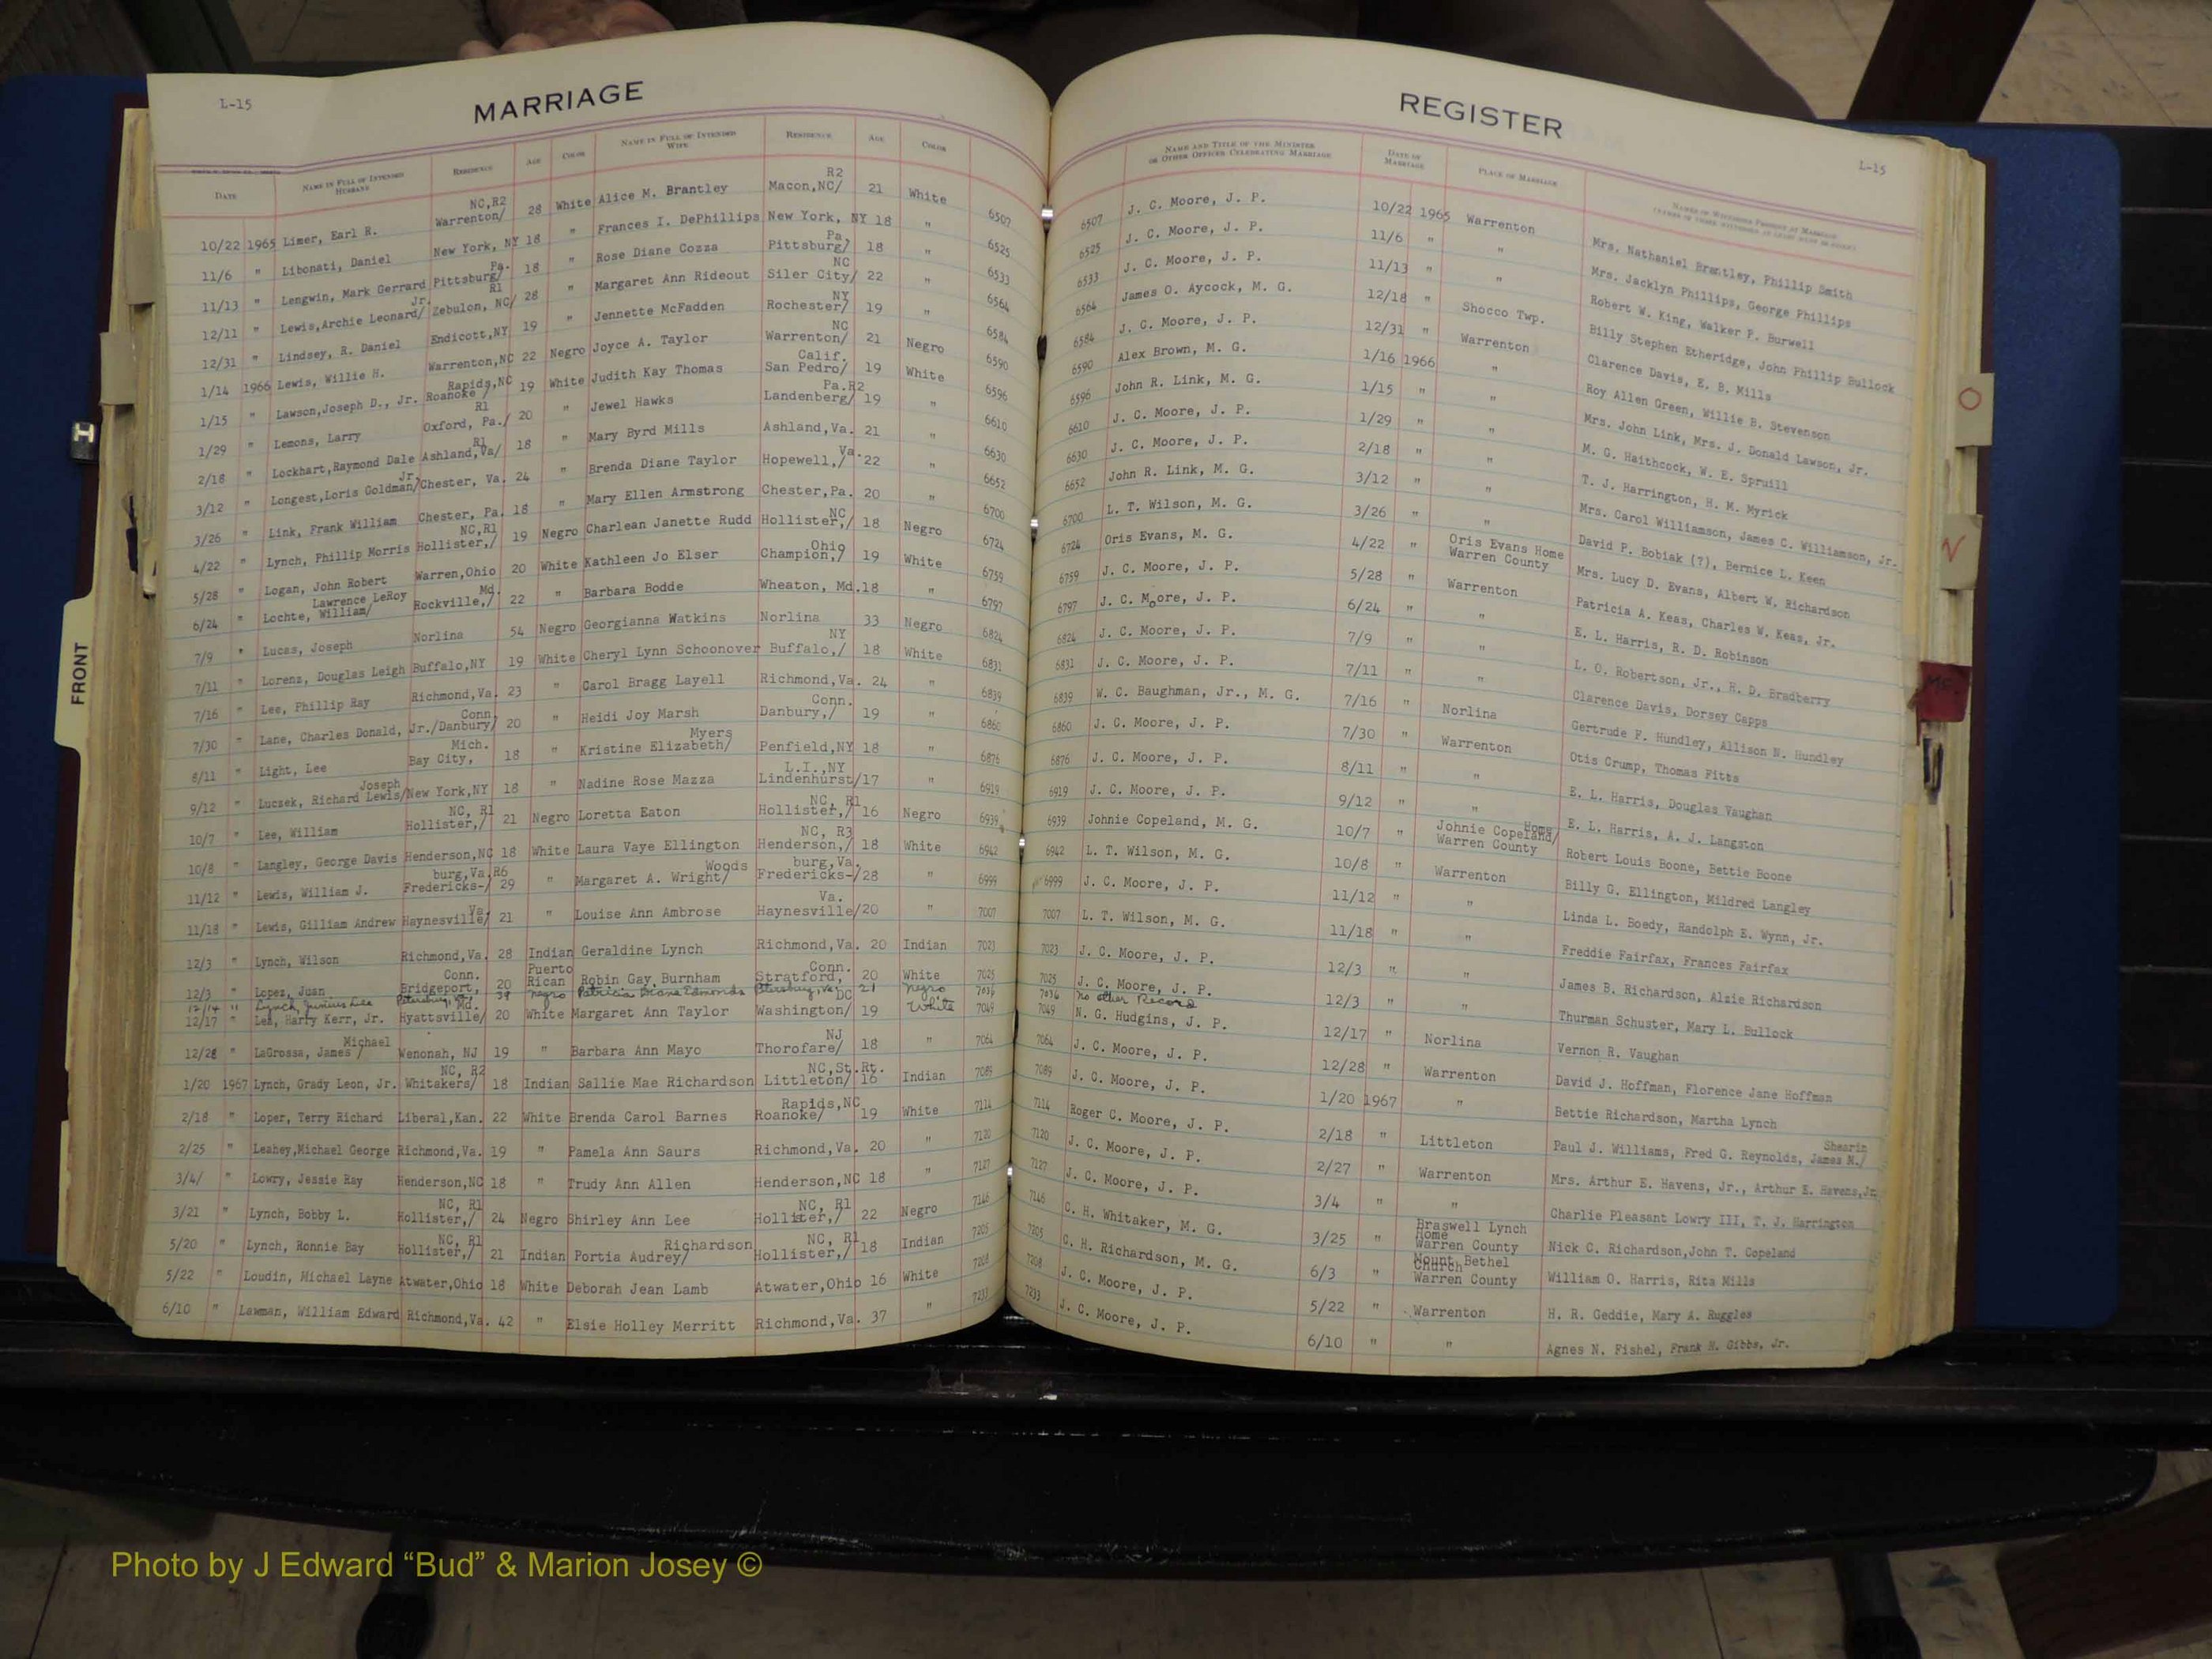 L-15
MARRIAGE
DATE NAME IN FULL OF INTENDED HUSBAND RESIDENCE AGE COLOR NAME IN FULL OF INTENDED WIFE RESIDENCE AGE COLOR
10/22 1965 Limer, Earl R. NC,R2 Warrenton/ 28 White Alice M. Brantley R2 Macon,NC/ 21 White 6507
11/6 " Libonati, Daniel New York, NY 18 " Frances I. DePhillips New York, NY 18 " 6525
11/13 " Lengwin, Mark Gerrard Pa. Pittsburg/ 18 " Rose Diane Cozza Pa. Pittsburg/ 18 " 6533
12/11 " Lewis,Archie Leonard/ Jr. R1 Zebulon, NC/ 28 " Margaret Ann Rideout NC Siler City/ 22 " 6564
12/31 " Lindsey, R. Daniel Endicott,NY 19 " Jennette McFadden NY Rochester/ 19 " 6584
1/14 1966 Lewis, Willie H. Warrenton,NC 22 Negro Joyce A. Taylor NC Warrenton/ 21 Negro 6590
1/15 " Lawson,Joseph D., Jr. Rapids,NC Roanoke / 19 White Judith Kay Thomas Calif. San Pedro/ 19 White 6596
1/29 " Lemons, Larry R1 Oxford, Pa./ 20 " Jewel Hawks Pa.R2 Landenberg/ 19 " 6610
2/18 " Lockhart,Raymond Dale R1 Ashland,Va/ 18 " Mary Byrd Mills Ashland,Va. 21 " 6630
3/12 " Longest,Loris Goldman/ Jr. Chester, Va. 24 " Brenda Diane Taylor Va. Hopewell,/ 22 " 6652
3/26 " Link, Frank William Chester, Pa. 18 " Mary Ellen Armstrong Chester,Pa. 20 " 6700
4/22 " Lynch, Phillip Morris NC,R1 Hollister,/ 19 Negro Charlean Janette Rudd NC Hollister,/ 18 Negro 6724
5/28 " Logan, John Robert Warren,Ohio 20 White Kathleen Jo Elser Ohio Champion,/ 19 White 6759
6/24 " Lochte, Lawrence LeRoy William/ Md. Rockville,/ 22 " Barbara Bodde Wheaton, Md.18 " 6797
7/9 " Lucas, Joseph Norlina 54 Negro Georgianna Watkins Norlina 33 Negro 6824
7/11 " Lorenz, Douglas Leigh Buffalo,NY 19 White Cheryl Lynn Schoonover NY Buffalo,/ 18 White 6831
7/16 " Lee, Phillip Ray Richmond,Va. 23 " Carol Bragg Layell Richmond,Va. 24 " 6839
7/30 " Lane, Charles Donald, Jr./ Conn. Danbury/ 20 " Heidi Joy Marsh Conn. Danbury,/ 19 " 6860
8/11 " Light, Lee Mich. Bay City, 18 " Kristine Elizabeth/ Myers Penfield,NY 18 " 6876
9/12 " Luczek, Richard Lewis/ Joseph New York,NY 18 " Nadine Rose Mazza L.I.,NY Lindenhurst/17 " 6919
10/7 " Lee, William NC, R1 Hollister,/ 21 Negro Loretta Eaton NC, R1 Hollister,/ 16 Negro 6939
10/8 " Langley, George Davis Henderson,NC 18 White Laura Vaye Ellington NC, R3 Henderson,/ 18 White 6942
11/12 " Lewis, William J. burg,Va.R6 Fredericks-/ 29 " Margaret A. Wright/ Woods burg,Va. Fredericks-/28 " 6999
11/18 " Lewis, Gilliam Andrew Va. Haynesville/ 21 " Louise Ann Ambrose Va. Haynesville/20 " 7007
12/3 " Lynch, Wilson Richmond,Va. 28 Indian Geraldine Lynch Richmond,Va. 20 Indian 7023
12/3 " Lopez, Juan Conn. Bridgeport, 20 Puerto Rican Robin Gay Burnham Conn. Stratford, 20 White 7025
12/14 " Lynch, Junius Lee Petersburg, Va. 39 Negro Patricia Diane Edmonds Petersburg, Va. 21 Negro 7036
12/17 " Lee, Harry Kerr, Jr. Md. Hyattsville/ 20 White Margaret Ann Taylor DC Washington/ 19 White 7049
12/28 " LaGrossa, James / Michael Wenonah, NJ 19 " Barbara Ann Mayo NJ Thorofare/ 18 " 7064
1/20 1967 Lynch, Grady Leon, Jr. NC, R2 Whitakers/ 18 Indian Sallie Mae Richardson NC,St.Rt. Littleton/ 16 Indian 7089
2/18 " Loper, Terry Richard Liberal,Kan. 22 White Brenda Carol Barnes Rapids,NC Roanoke/ 19 White 7114
2/25 " Leahey,Michael George Richmond,Va. 19 " Pamela Ann Saurs Richmond,Va. 20 " 7120
3/4/ " Lowry, Jessie Ray Henderson,NC 18 " Trudy Ann Allen Henderson,NC 18 " 7127
3/21 " Lynch, Bobby L. NC, R1 Hollister,/ 24 Negro Shirley Ann Lee NC, R1 Hollister,/ 22 Negro 7146
5/20 " Lynch, Ronnie Bay NC, R1 Hollister,/ 21 Indian Portia Audrey/ Richardson NC, R1 Hollister,/ 18 Indian 7205
5/22 " Loudin, Michael Layne Atwater,Ohio 18 White Deborah Jean Lamb Atwater,Ohio 16 White 7208
6/10 " Lawman, William Edward Richmond,Va. 42 " Elsie Holley Merritt Richmond,Va. 37 " 7233
REGISTER
L-15
NAME AND TITLE OF THE MINISTER OR OTHER OFFICER CELEBRATING MARRIAGE DATE OF MARRIAGE PLACE OF MARRIAGE NAMES OF WITNESSES PRESENT AT MARRIAGE
6507 J. C. Moore, J. P. 10/22 1965 Warrenton Mrs. Nathaniel Brantley, Phillip Smith
6525 J. C. Moore, J. P. 11/6 " " Mrs. Jacklyn Phillips, George Phillips
6533 J. C. Moore, J. P. 11/13 " " Robert W. King, Walker P. Burwell
6564 James O. Aycock, M. G. 12/18 " Shocco Twp. Billy Stephen Etheridge, John Phillip Bullock
6584 J. C. Moore, J. P. 12/31 " Warrenton Clarence Davis, E. B. Mills
6590 Alex Brown, M. G. 1/16 1966 " Roy Allen Green, Willie B. Stevenson
6596 John R. Link, M. G. 1/15 " " Mrs. John Link, Mrs. J. Donald Lawson, Jr.
6610 J. C. Moore, J. P. 1/29 " " M. G. Haithcock, W. E. Spruill
6630 J. C. Moore, J. P. 2/18 " " T. J. Harrington, H. M. Myrick
6652 John R. Link, M. G. 3/12 " " Mrs. Carol Williamson, James C. Williamson, Jr.
6700 L. T. Wilson, M. G. 3/26 " " David P. Bobiak (?), Bernice L. Keen
6724 Oris Evans, M. G. 4/22 " Oris Evans Home Warren County Mrs. Lucy D. Evans, Albert W. Richardson
6759 J. C. Moore, J. P. 5/28 " Warrenton Patricia A. Keas, Charles W. Keas, Jr.
6797 J. C. Moore, J. P. 6/24 " " E. L. Harris, R. D. Robinson
6824 J. C. Moore, J. P. 7/9 " " L. O. Robertson, Jr., H. D. Bradberry
6831 J. C. Moore, J. P. 7/11 " " Clarence Davis, Dorsey Capps
6839 W. C. Baughman, Jr., M. G. 7/16 " Norlina Gertrude F. Hundley, Allison N. Hundley
6860 J. C. Moore, J. P. 7/30 " Warrenton Otis Crump, Thomas Fitts
6876 J. C. Moore, J. P. 8/11 " " E. L. Harris, Douglas Vaughan
6919 J. C. Moore, J. P. 9/12 " " E. L. Harris, A. J. Langston
6939 Johnie Copeland, M. G. 10/7 " Johnie Copeland/ Home Warren County Robert Louis Boone, Bettie Boone
6942 L. T. Wilson, M. G. 10/8 " Warrenton Billy G. Ellington, Mildred Langley
6999 J. C. Moore, J. P. 11/12 " " Linda L. Boedy, Randolph E. Wynn, Jr.
7007 L. T. Wilson, M. G. 11/18 " " Freddie Fairfax, Frances Fairfax
7023 J. C. Moore, J. P. 12/3 " " James B. Richardson, Alzie Richardson
7025 J. C. Moore, J. P. 12/3 " " Thurman Schuster, Mary L. Bullock
7036 No other Record
7049 N. G. Hudgins, J. P. 12/17 " Norlina Vernon R. Vaughan
7064 J. C. Moore, J. P. 12/28 " Warrenton David J. Hoffman, Florence Jane Hoffman
7089 J. C. Moore, J. P. 1/20 1967 " Bettie Richardson, Martha Lynch
7114 Roger C. Moore, J. P. 2/18 " Littleton Paul J. Williams, Fred G. Reynolds, James M./ Shearin
7120 J. C. Moore, J. P. 2/27 " Warrenton Mrs. Arthur E. Havens, Jr., Arthur E. Havens,Jr.
7127 J. C. Moore, J. P. 3/4 " " Charlie Pleasant Lowry III, T. J. Harrington
7146 C. H. Whitaker, M. G. 3/25 " Braswell Lynch Home Warren County Nick C. Richardson,John T. Copeland
7205 C. H. Richardson, M. G. 6/3 " Mount Bethel Church Warren County William O. Harris, Rita Mills
7208 J. C. Moore, J. P. 5/22 " Warrenton H. R. Geddie, Mary A. Ruggles
7233 J. C. Moore, J. P. 6/10 " " Agnes N. Fishel, Frank H. Gibbs, Jr.
FRONT
H
O
N
Mc
Photo by J Edward “Bud” & Marion Josey ©